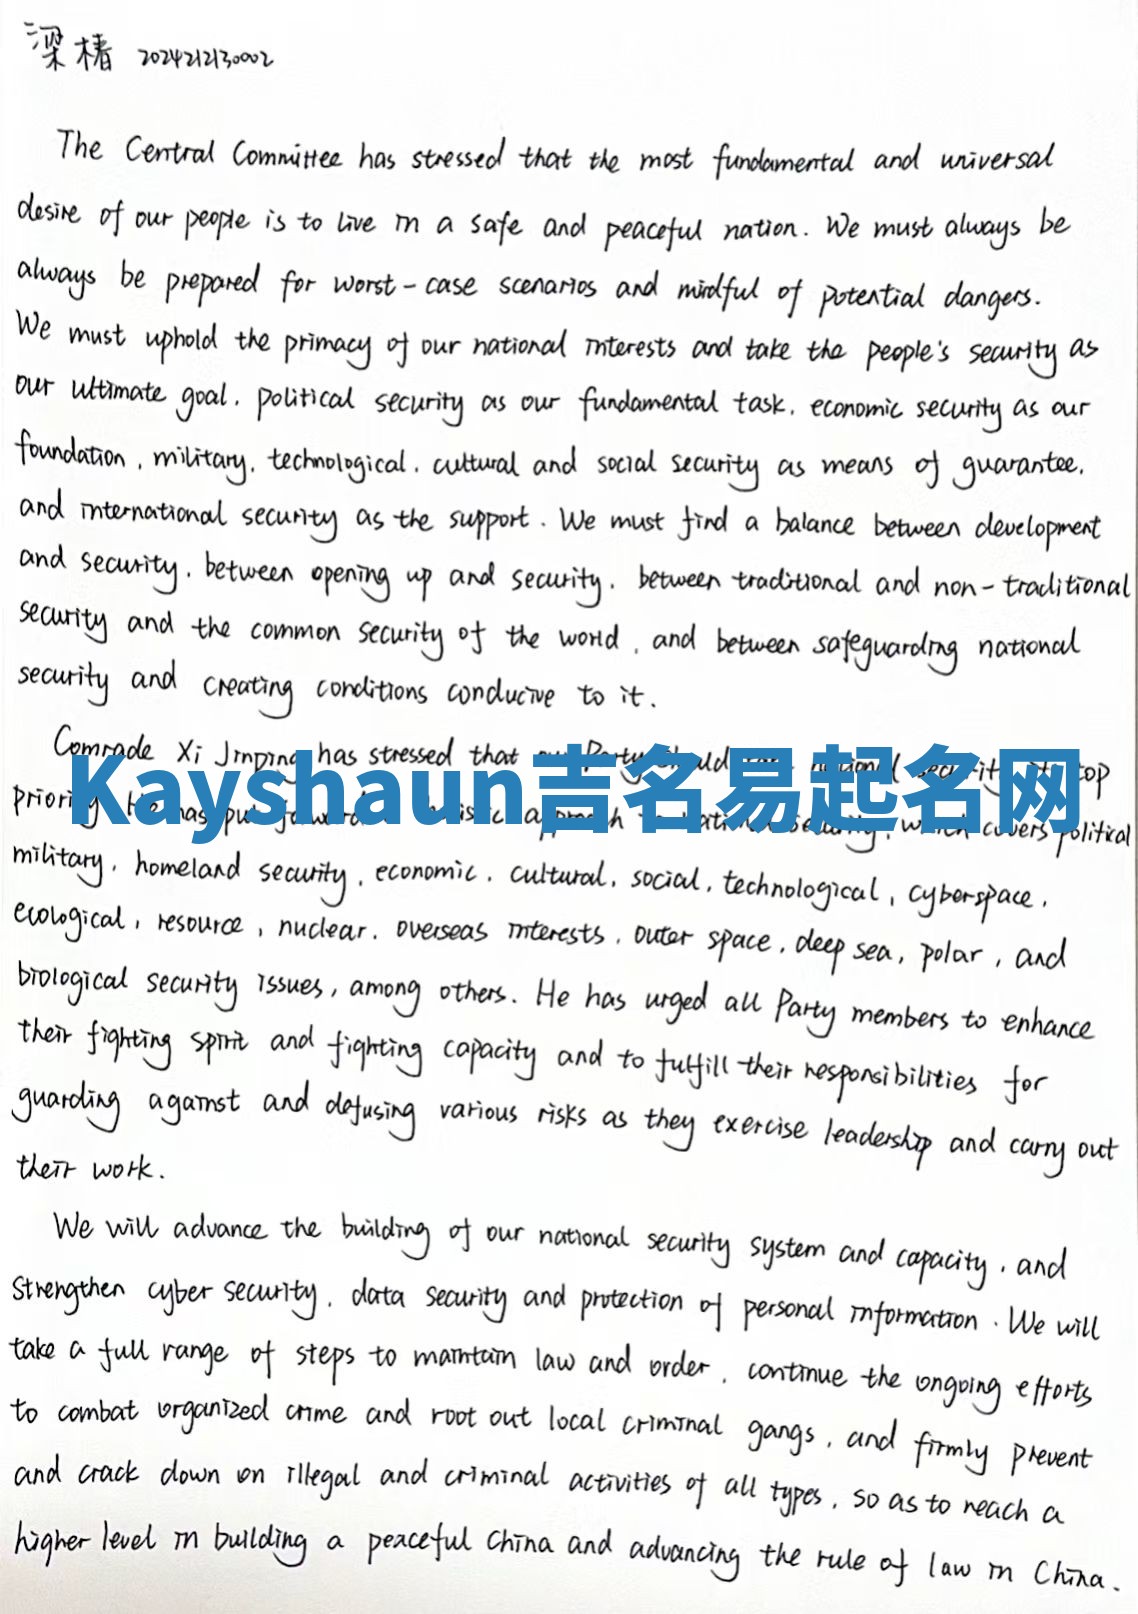 梁椿 2024212130002
The Central Committee has stressed that the most fundamental and universal
desire of our people is to live in a safe and peaceful nation. We must always be
always be prepared for worst-case scenarios and mindful of potential dangers.
We must uphold the primacy of our national interests and take the people's security as
our ultimate goal, political security as our fundamental task, economic security as our
foundation, military, technological, cultural and social security as means of guarantee,
and international security as the support. We must find a balance between development
and security, between opening up and security, between traditional and non-traditional
security and the common security of the world, and between safeguarding national
security and creating conditions conducive to it.
Comrade Xi Jinping has stressed that our Party should national security its top
Kayshaun吉名易起名网
priority. He has put forward a holistic approach to national security, which covers political
military, homeland security, economic, cultural, social, technological, cyberspace,
ecological, resource, nuclear, overseas interests, outer space, deep sea, polar, and
biological security issues, among others. He has urged all Party members to enhance
their fighting spirit and fighting capacity and to fulfill their responsibilities for
guarding against and defusing various risks as they exercise leadership and carry out
their work.
We will advance the building of our national security system and capacity, and
strengthen cyber security, data security and protection of personal information. We will
take a full range of steps to maintain law and order, continue the ongoing efforts
to combat organized crime and root out local criminal gangs, and firmly prevent
and crack down on illegal and criminal activities of all types, so as to reach a
higher level in building a peaceful China and advancing the rule of law in China.